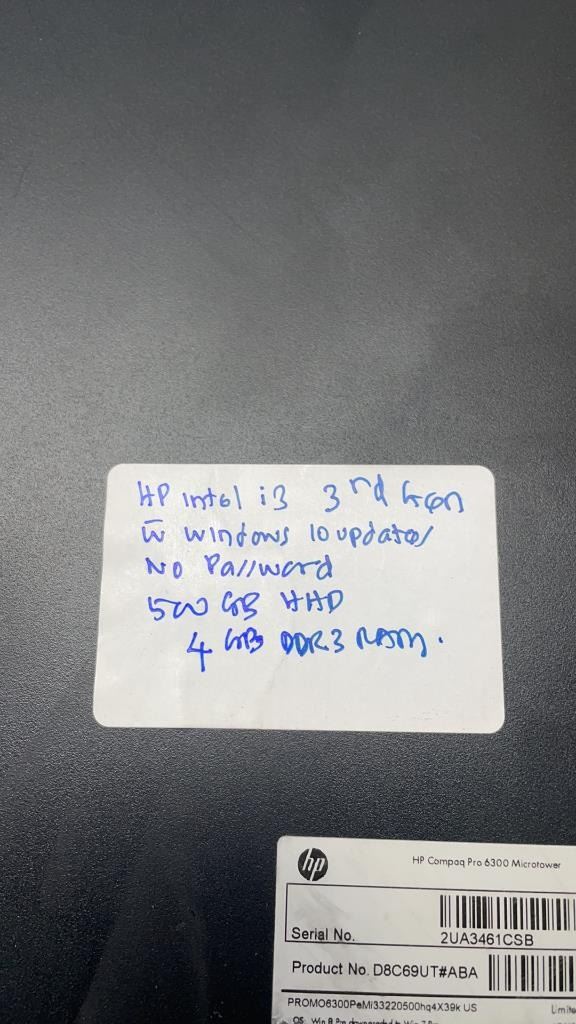 HP intel i3 3rd Gen
w̄ windows 10 updates
No Password
500 GB HHD
4 GB DDR3 RAM.
hp
HP Compaq Pro 6300 Microtower
Serial No.
2UA3461CSB
Product No. D8C69UT#ABA
PROMO6300PeMi33220500hq4X39k US
Limite
OS: Win 8 Pro downgraded to Win 7 Pro